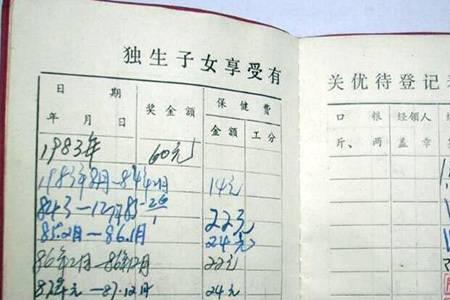 独生子女享受有
关优待登记
日期
年月日
奖金额
保健费
金额 工分
口粮
斤、两
经领人
盖章
1983年 60元
1983年8月-84年2月 14元
22元
85.2月-86.1月 24元
86年2月-86年12月 22元
87年元-87.12月 24元